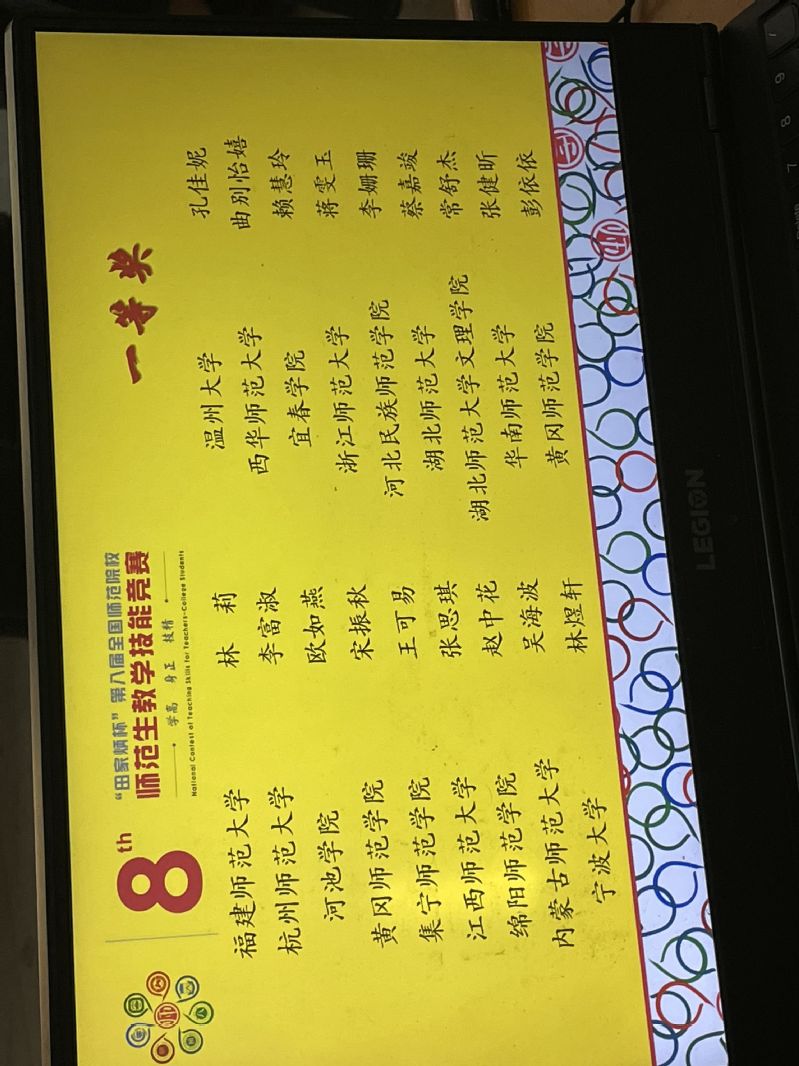 8th
“田家炳杯”第八届全国师范院校
师范生教学技能竞赛
学高 身正 技精
National Contest of Teaching Skills for Teachers-College Students
一等奖
福建师范大学 林 莉 温州大学 孔佳妮
杭州师范大学 李富淑 西华师范大学 曲别怡嬉
河池学院 欧如燕 宜春学院 赖慧玲
黄冈师范学院 宋振秋 浙江师范大学 蒋雯玉
集宁师范学院 王可易 河北民族师范学院 李姗珊
江西师范大学 张思琪 湖北师范大学 蔡嘉竣
绵阳师范学院 赵中花 湖北师范大学文理学院 常舒杰
内蒙古师范大学 吴海波 华南师范大学 张健昕
宁波大学 林煜轩 黄冈师范学院 彭依依
LEGION